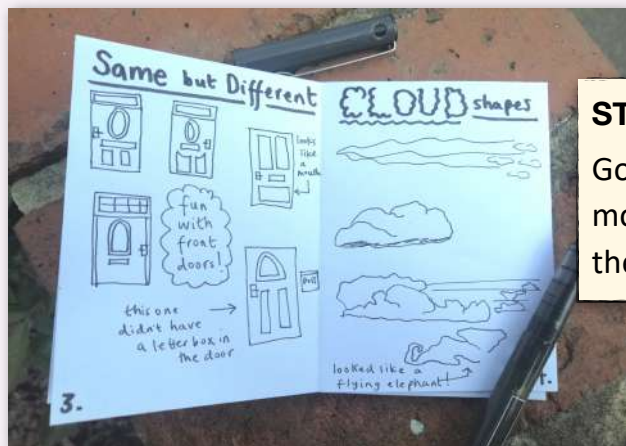 Same but Different
looks
like
a
mouth
fun
with
front
doors!
this one
didn't have
a letter box in
the door
3.
CLOUD shapes
looked like a
flying elephant!
ST
Go
mo
the